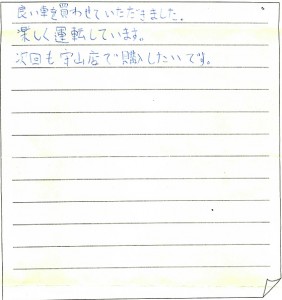 良い車を買わせていただきました。
楽しく運転しています。
次回も守山店で購入したいです。